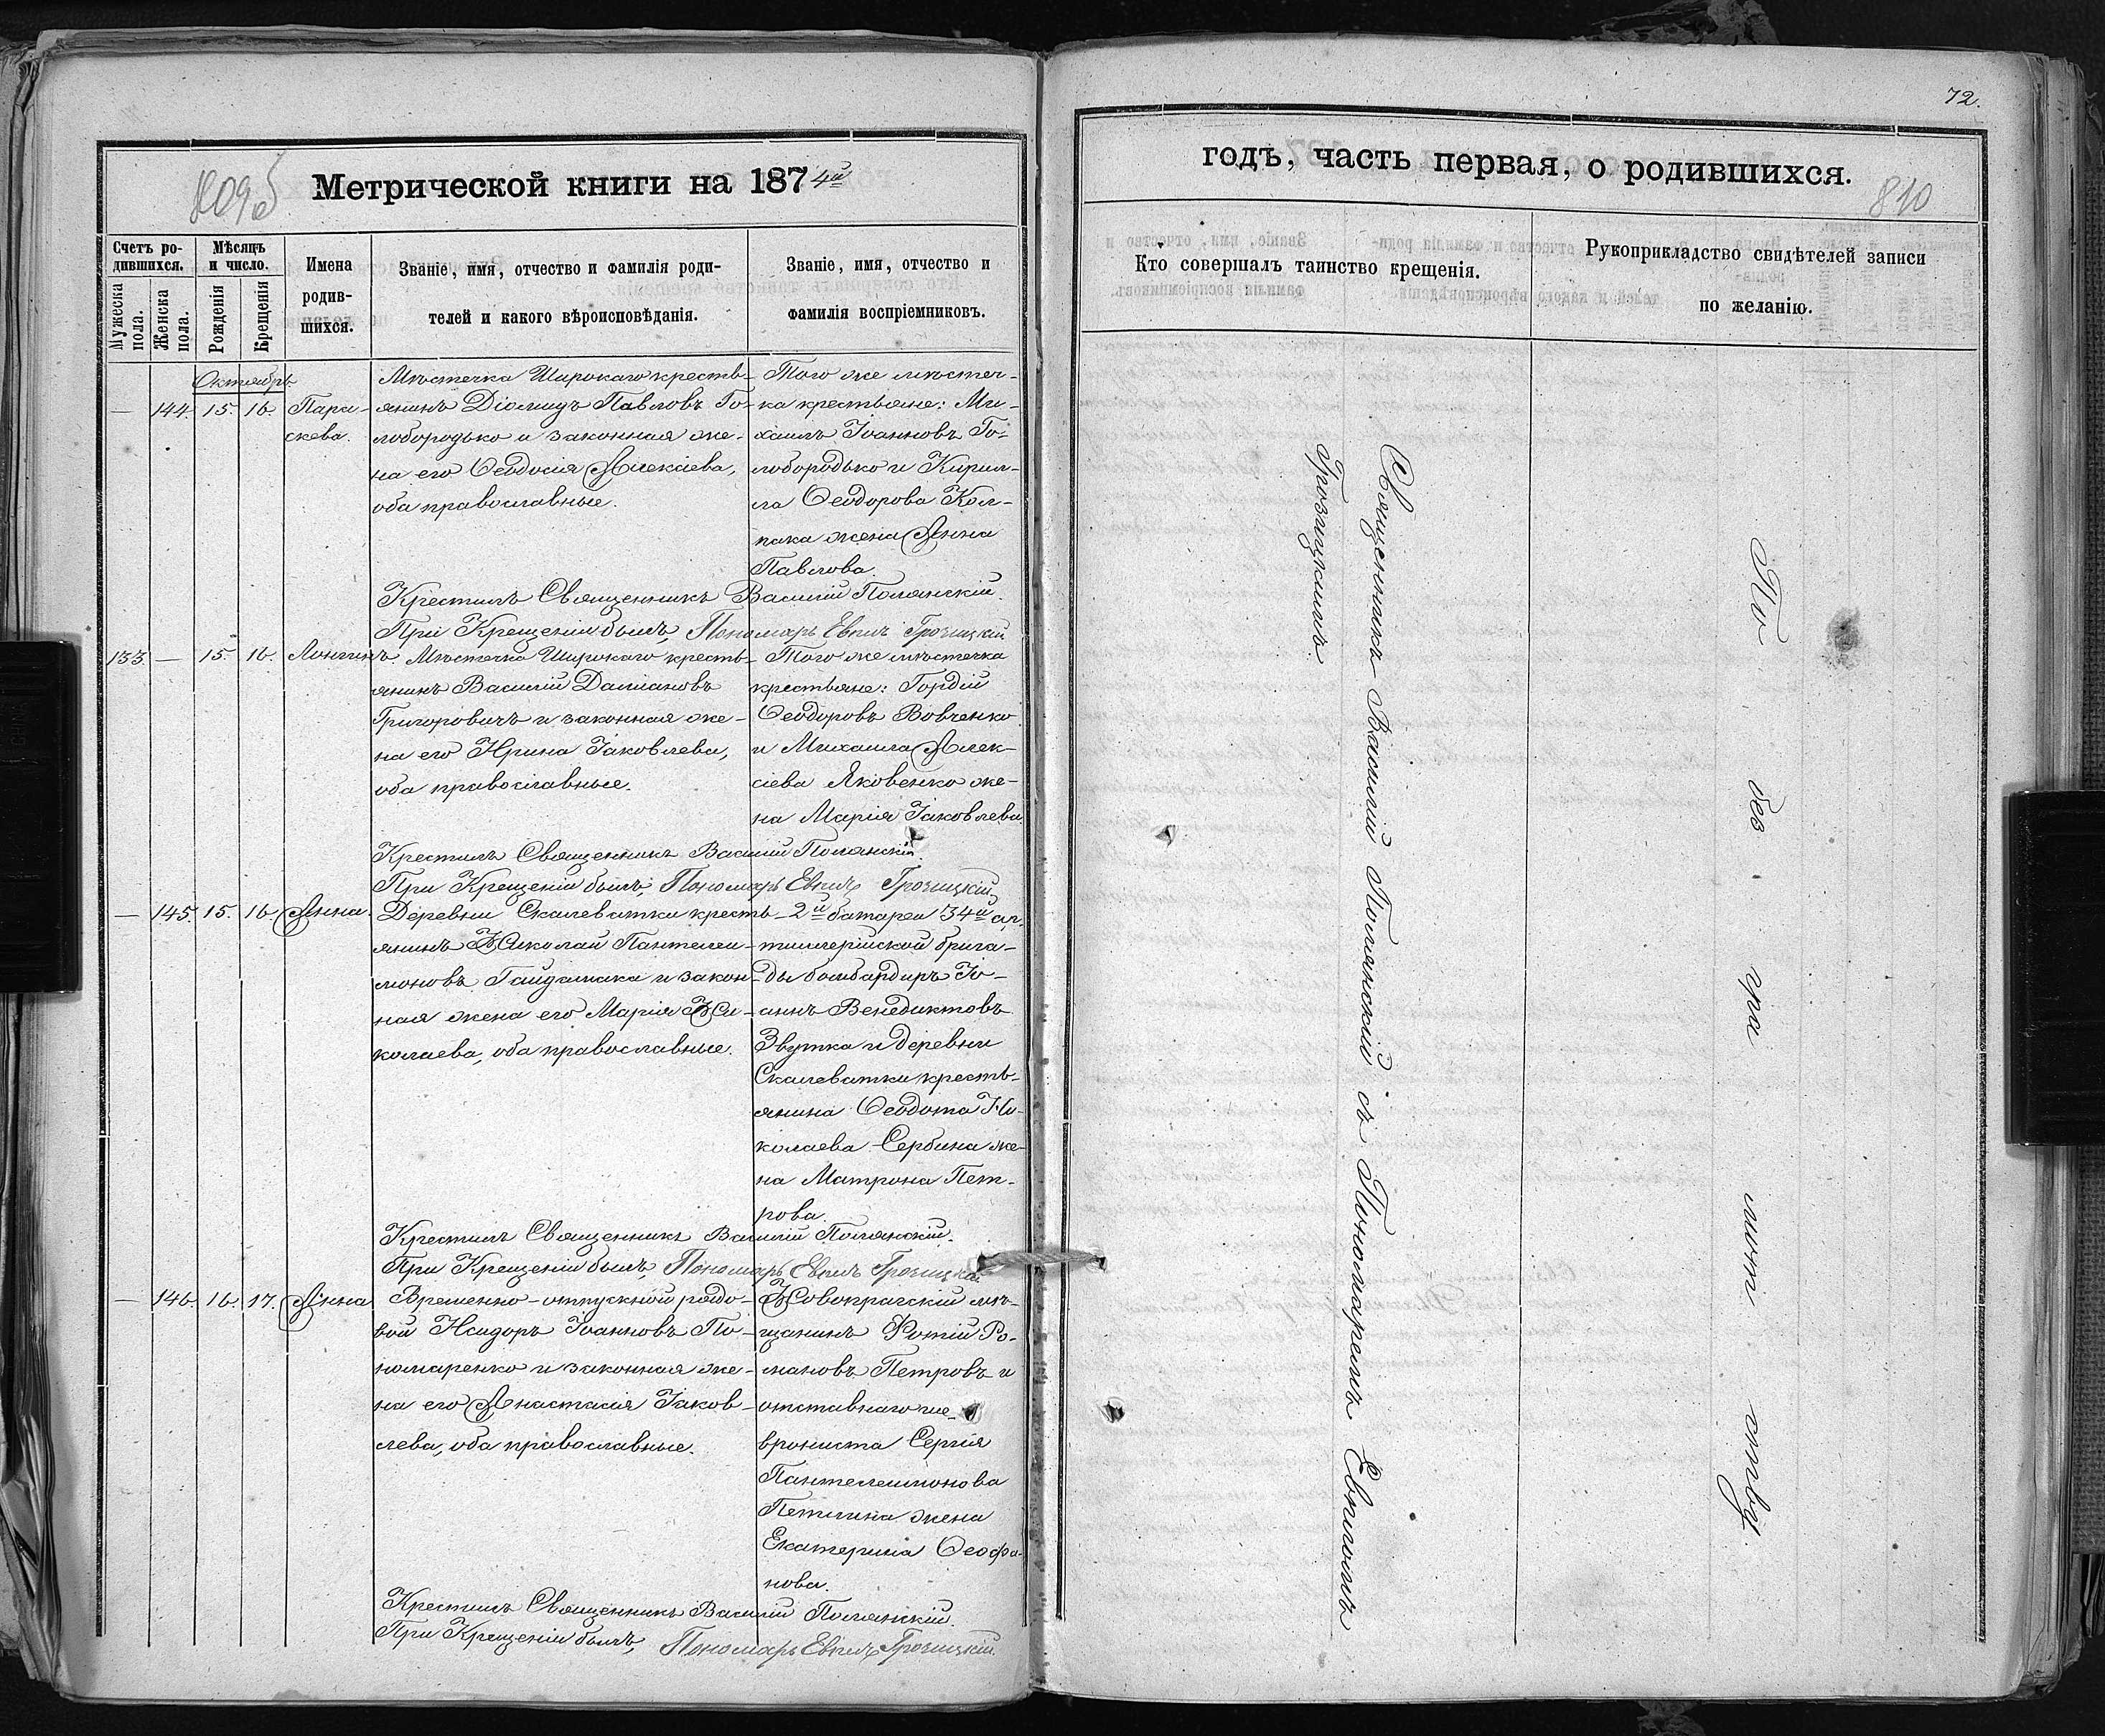 809б
Метрической книги на 1874й
Счетъ ро-
дившихся.
Мужеска
пола.
Женска
пола.
Мѣсяцъ
и число.
Рожденія
Крещенія
Имена
родив-
шихся.
Званіе, имя, отчество и фамилія роди-
телей и какого вѣроисповѣданія.
Званіе, имя, отчество и
фамилія воспріемниковъ.
Октябрь
— 144. 15. 16. Пара-
скева.
Мѣстечка Широкаго кресть-
янинъ Діомидъ Павловъ Го-
лобородько и законная же-
на его Ѳеодосія Алексіева,
оба православные.
Того же мѣстеч-
ка крестьяне: Ми-
хаилъ Іоанновъ Го-
лобородько и Кирил-
ла Ѳеодорова Кол-
пака жена Анна
Павлова.
Крестилъ Священникъ Василій Полянскій.
При Крещеніи былъ, Пономарь Евпилъ Грозицкій
133. — 15. 16. Лонгинъ.
Мѣстечка Широкаго кресть-
янинъ Василій Даміановъ
Григоровичъ и законная же-
на его Ирина Іаковлева,
оба православные.
Того же мѣстечка
крестьяне: Гордій
Ѳеодоровъ Вовченко
и Михаила Алек-
сіева Яковенко же-
на Марія Іаковлева.
Крестилъ Священникъ Василій Полянскій.
При Крещеніи былъ, Пономарь Евпилъ Грозицкій.
— 145. 15. 16. Анна.
Деревни Скалеватки кресть-
янинъ Николай Пантелеи-
моновъ Гайдамака и закон-
ная жена его Марія Ни-
колаева, оба православные.
2й батареи 34й ар-
тиллерійской брига-
ды бомбардиръ Іо-
аннъ Венедиктовъ
Звутка и деревни
Скалеватки кресть-
янина Ѳеодота Ни-
колаева Сербина же-
на Матрона Пет-
рова.
Крестилъ Священникъ Василій Полянскій.
При Крещеніи былъ, Пономарь Евпилъ Грозицкій
— 146. 16. 17. Анна
Временно-отпускной рядо-
вой Исидоръ Іоанновъ По-
номаренко и законная же-
на его Анастасія Іаков-
лева, оба православные.
Новопражскій мѣ-
щанинъ Фотій Ро-
мановъ Петровъ и
отставнаго
Сергія
Пантелеимонова
жена
Екатерина Ѳеофа-
нова.
Крестилъ Священникъ Василій Полянскій.
При Крещеніи былъ, Пономарь Евпилъ Грозицкій.
72.
годъ, часть первая, о родившихся.
810
Кто совершалъ таинство крещенія.
Рукоприкладство свидѣтелей записи
по желанію.
Священникъ Василій Полянскій съ Пономаремъ Евпиломъ
Грозицкимъ.
По без гра мот ству.